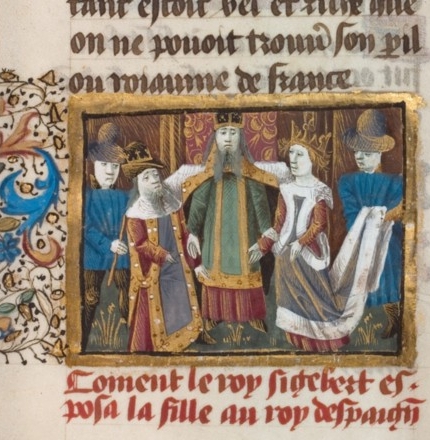 tant estoit bel et riche que
on ne pouoit trouu son pil
ou roiaume de france
Coment le roy sigebert es-
posa la fille au roy despaign